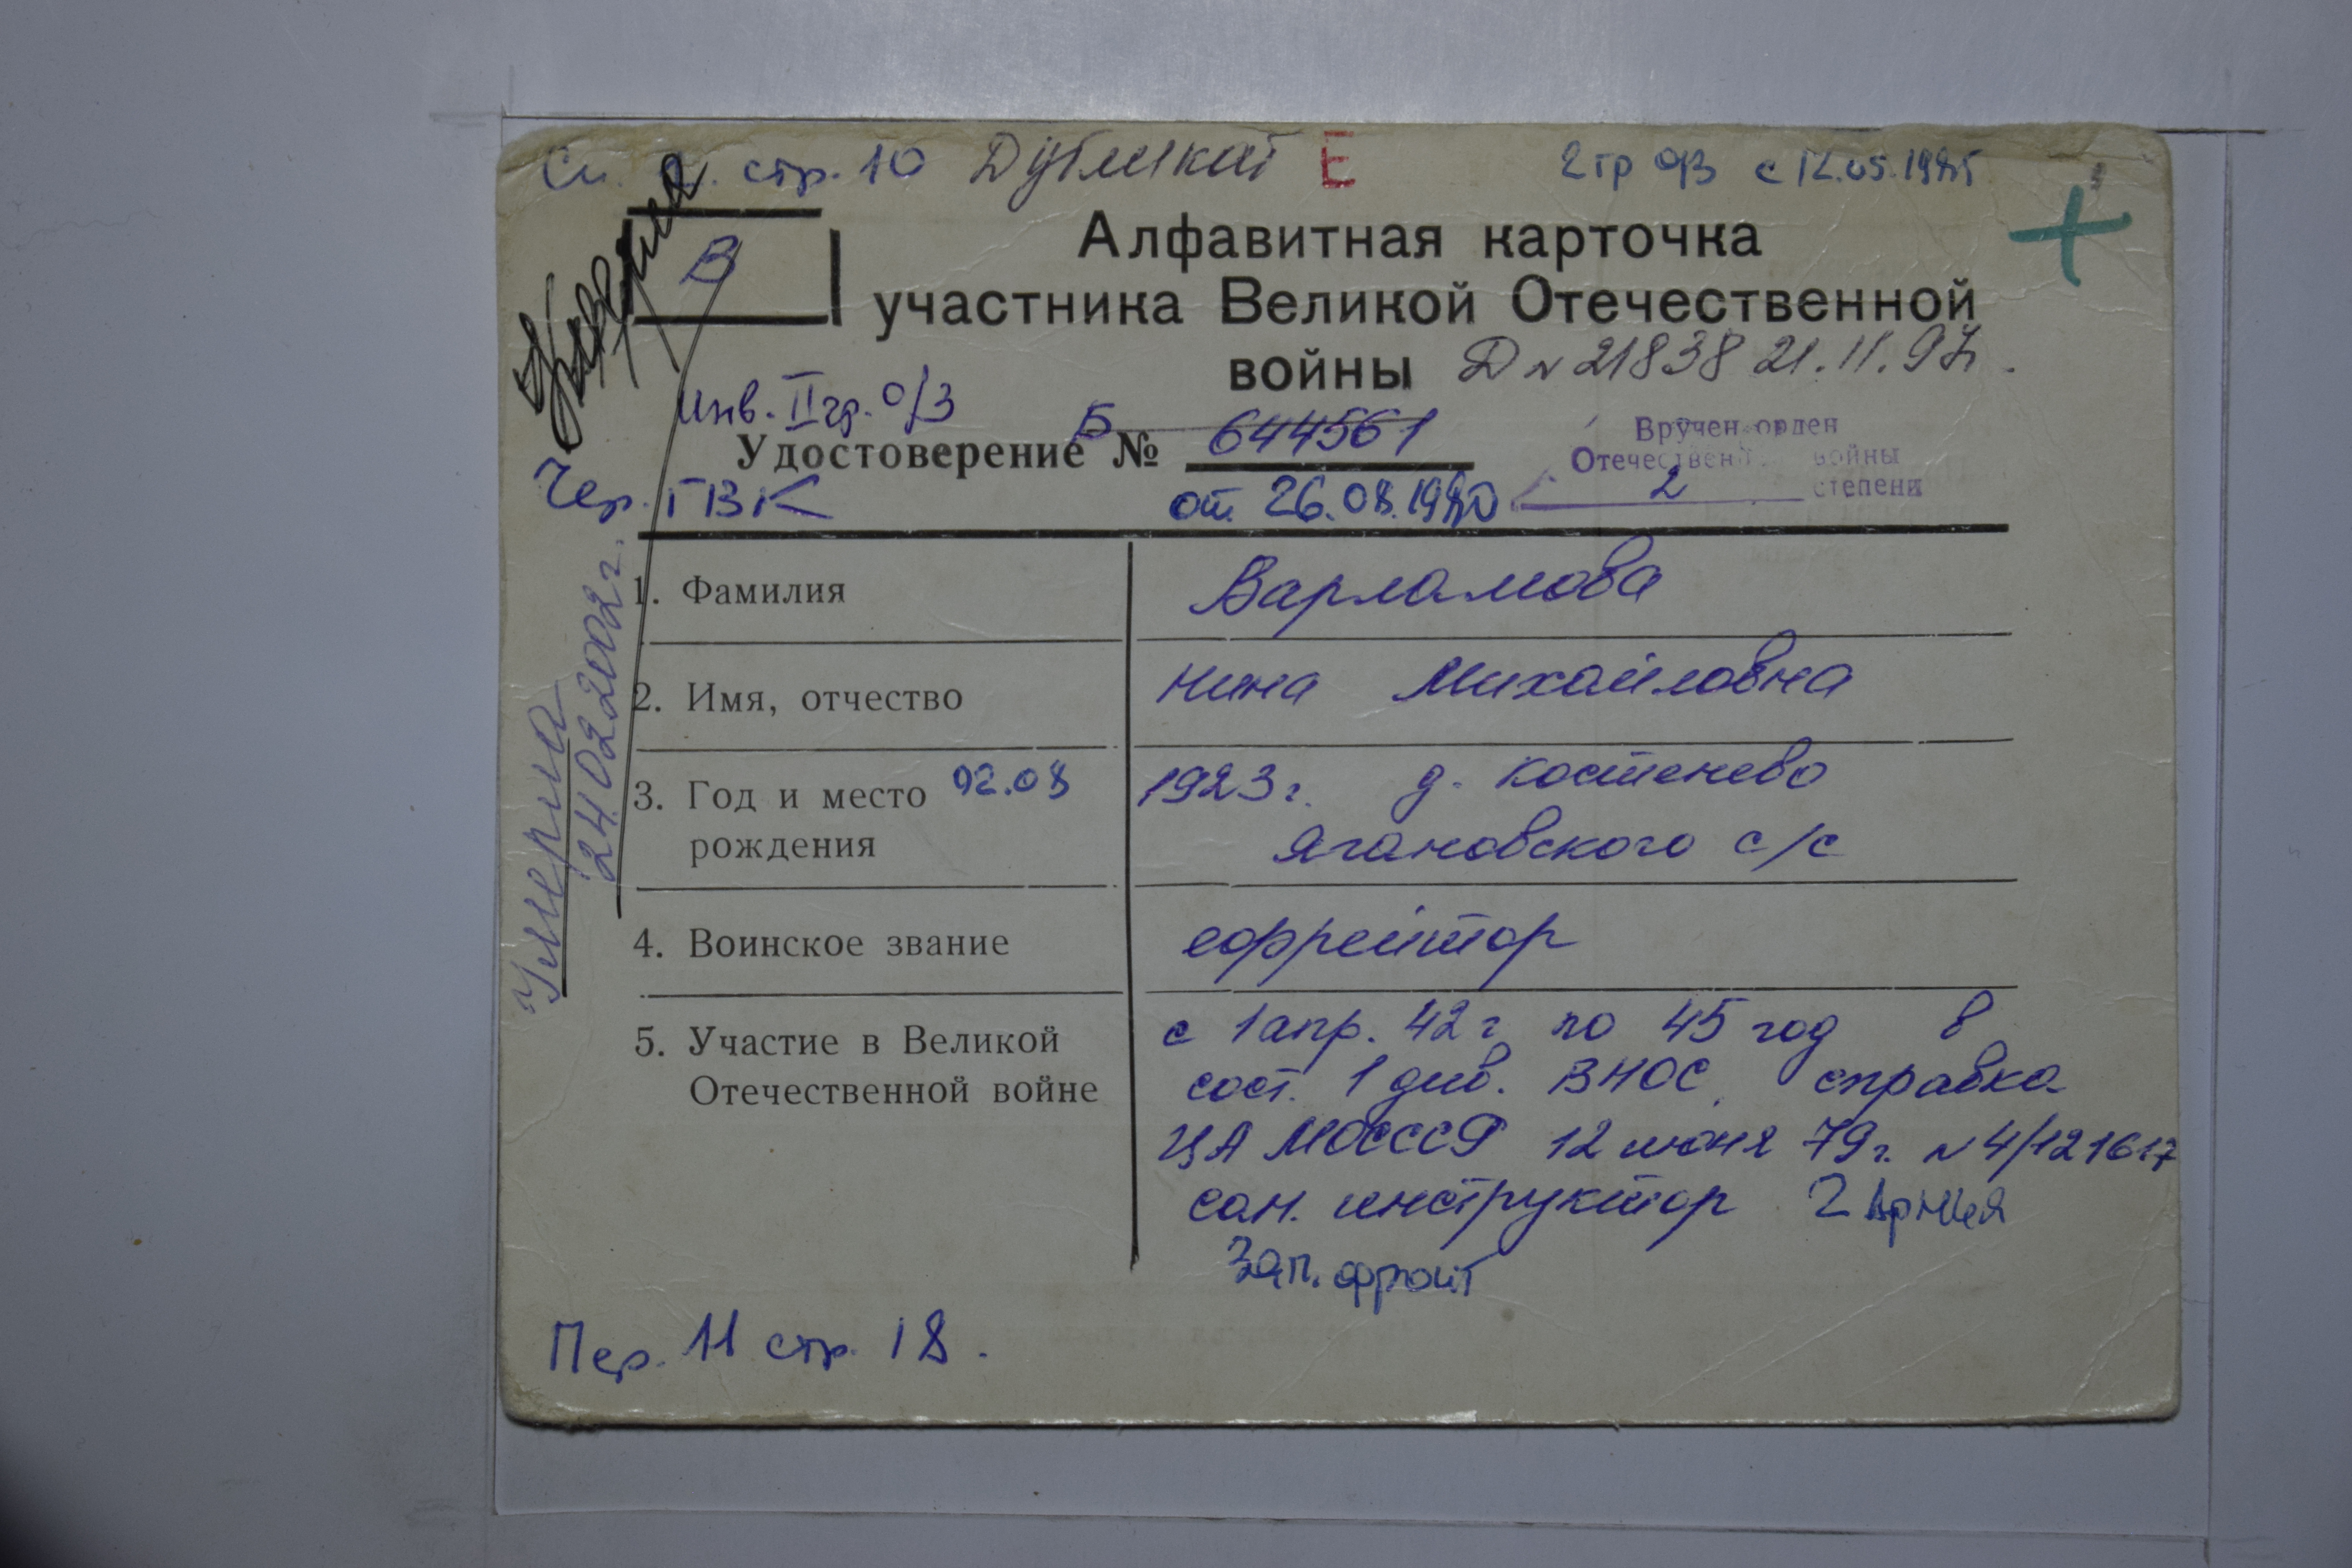 стр. 10 Дубликат Е 2 гр о/з с 12.05.1985
+
В
Алфавитная карточка
участника Великой Отечественной
войны Д N 21838 21.11.97г.
Инв. II гр. о/з
Удостоверение Б № 644561
Вручен орден
Отечествен войны
2 степени
Чер. ГВК от 26.08.1980
Умерла
Умерла
24.02.2002г.
1. Фамилия Варламова
2. Имя, отчество Нина Михайловна
3. Год и место 02.08 1923г. д. Костенево
рождения Ягановского с/с
4. Воинское звание ефрейтор
5. Участие в Великой с 1 апр. 42г по 45 год в
Отечественной войне сост. 1 див. ВНОС, справка
ЦА МОСССР 12 июня 79г. N 4/121617
сан. инструктор 2 Армия
Зап. фронт
Пер. 11 стр. 18.